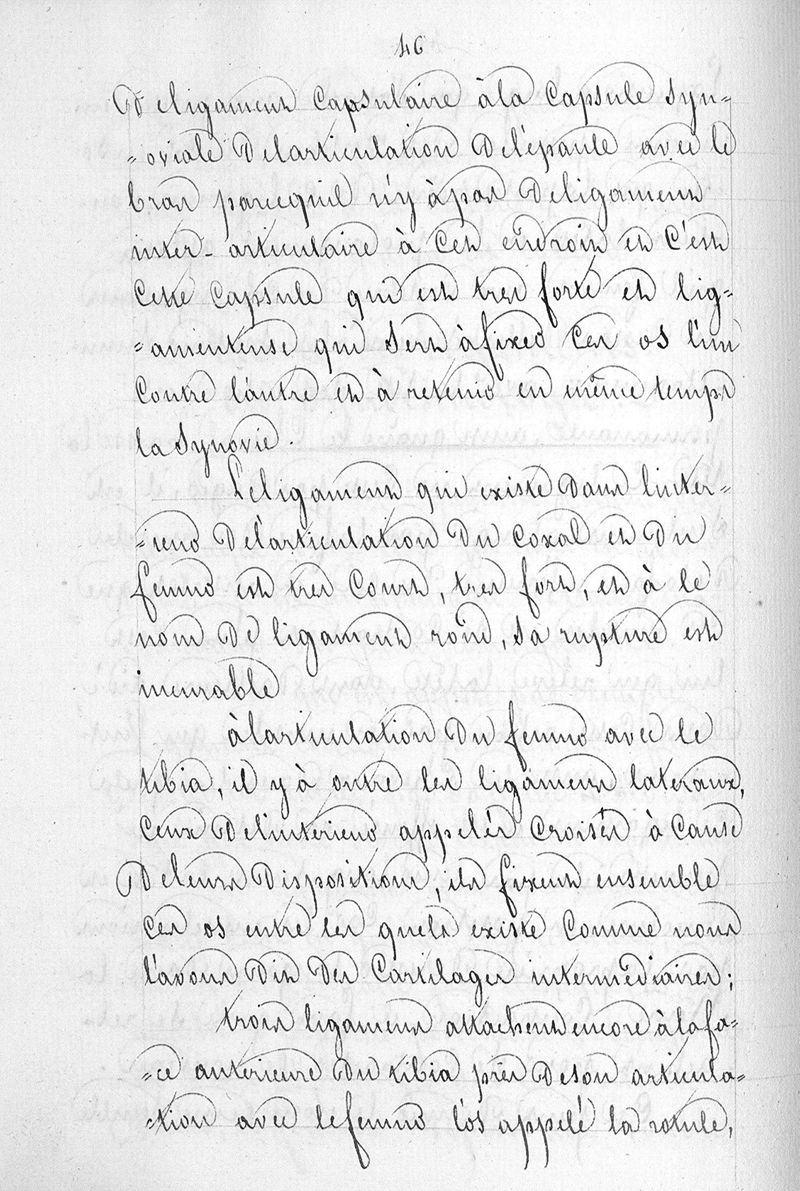 46
De ligament capsulaire à la capsule syn=
=oviale de larticulation de l'épaule avec le
bras parcequil n'y à pas de ligament
inter-articulaire à cet endroit et c'est
cette capsule qui est très forte et lig=
=amenteuse qui sert à fixer ces os l'un
contre l'autre et à retenir en même temps
la synovie.
Le ligament qui existe dans l'inter=
=ieur de l'articulation du coxal et du
femur est très court, très fort, et à le
nom de ligament rond, sa rupture est
incurable
à larticulation du femur avec le
tibia, il y à outre les ligaments lateraux,
ceux de l'interieur appelés croisés à cause
de leurs dispositions, ils fixent ensemble
ces os entre les quels existe comme nous
l'avons dit des cartilages intermédiaires;
trois ligaments attachent encore à la fa=
=ce anterieure du tibia près de son articula=
=tion avec le femur l'os appelé la rotule,